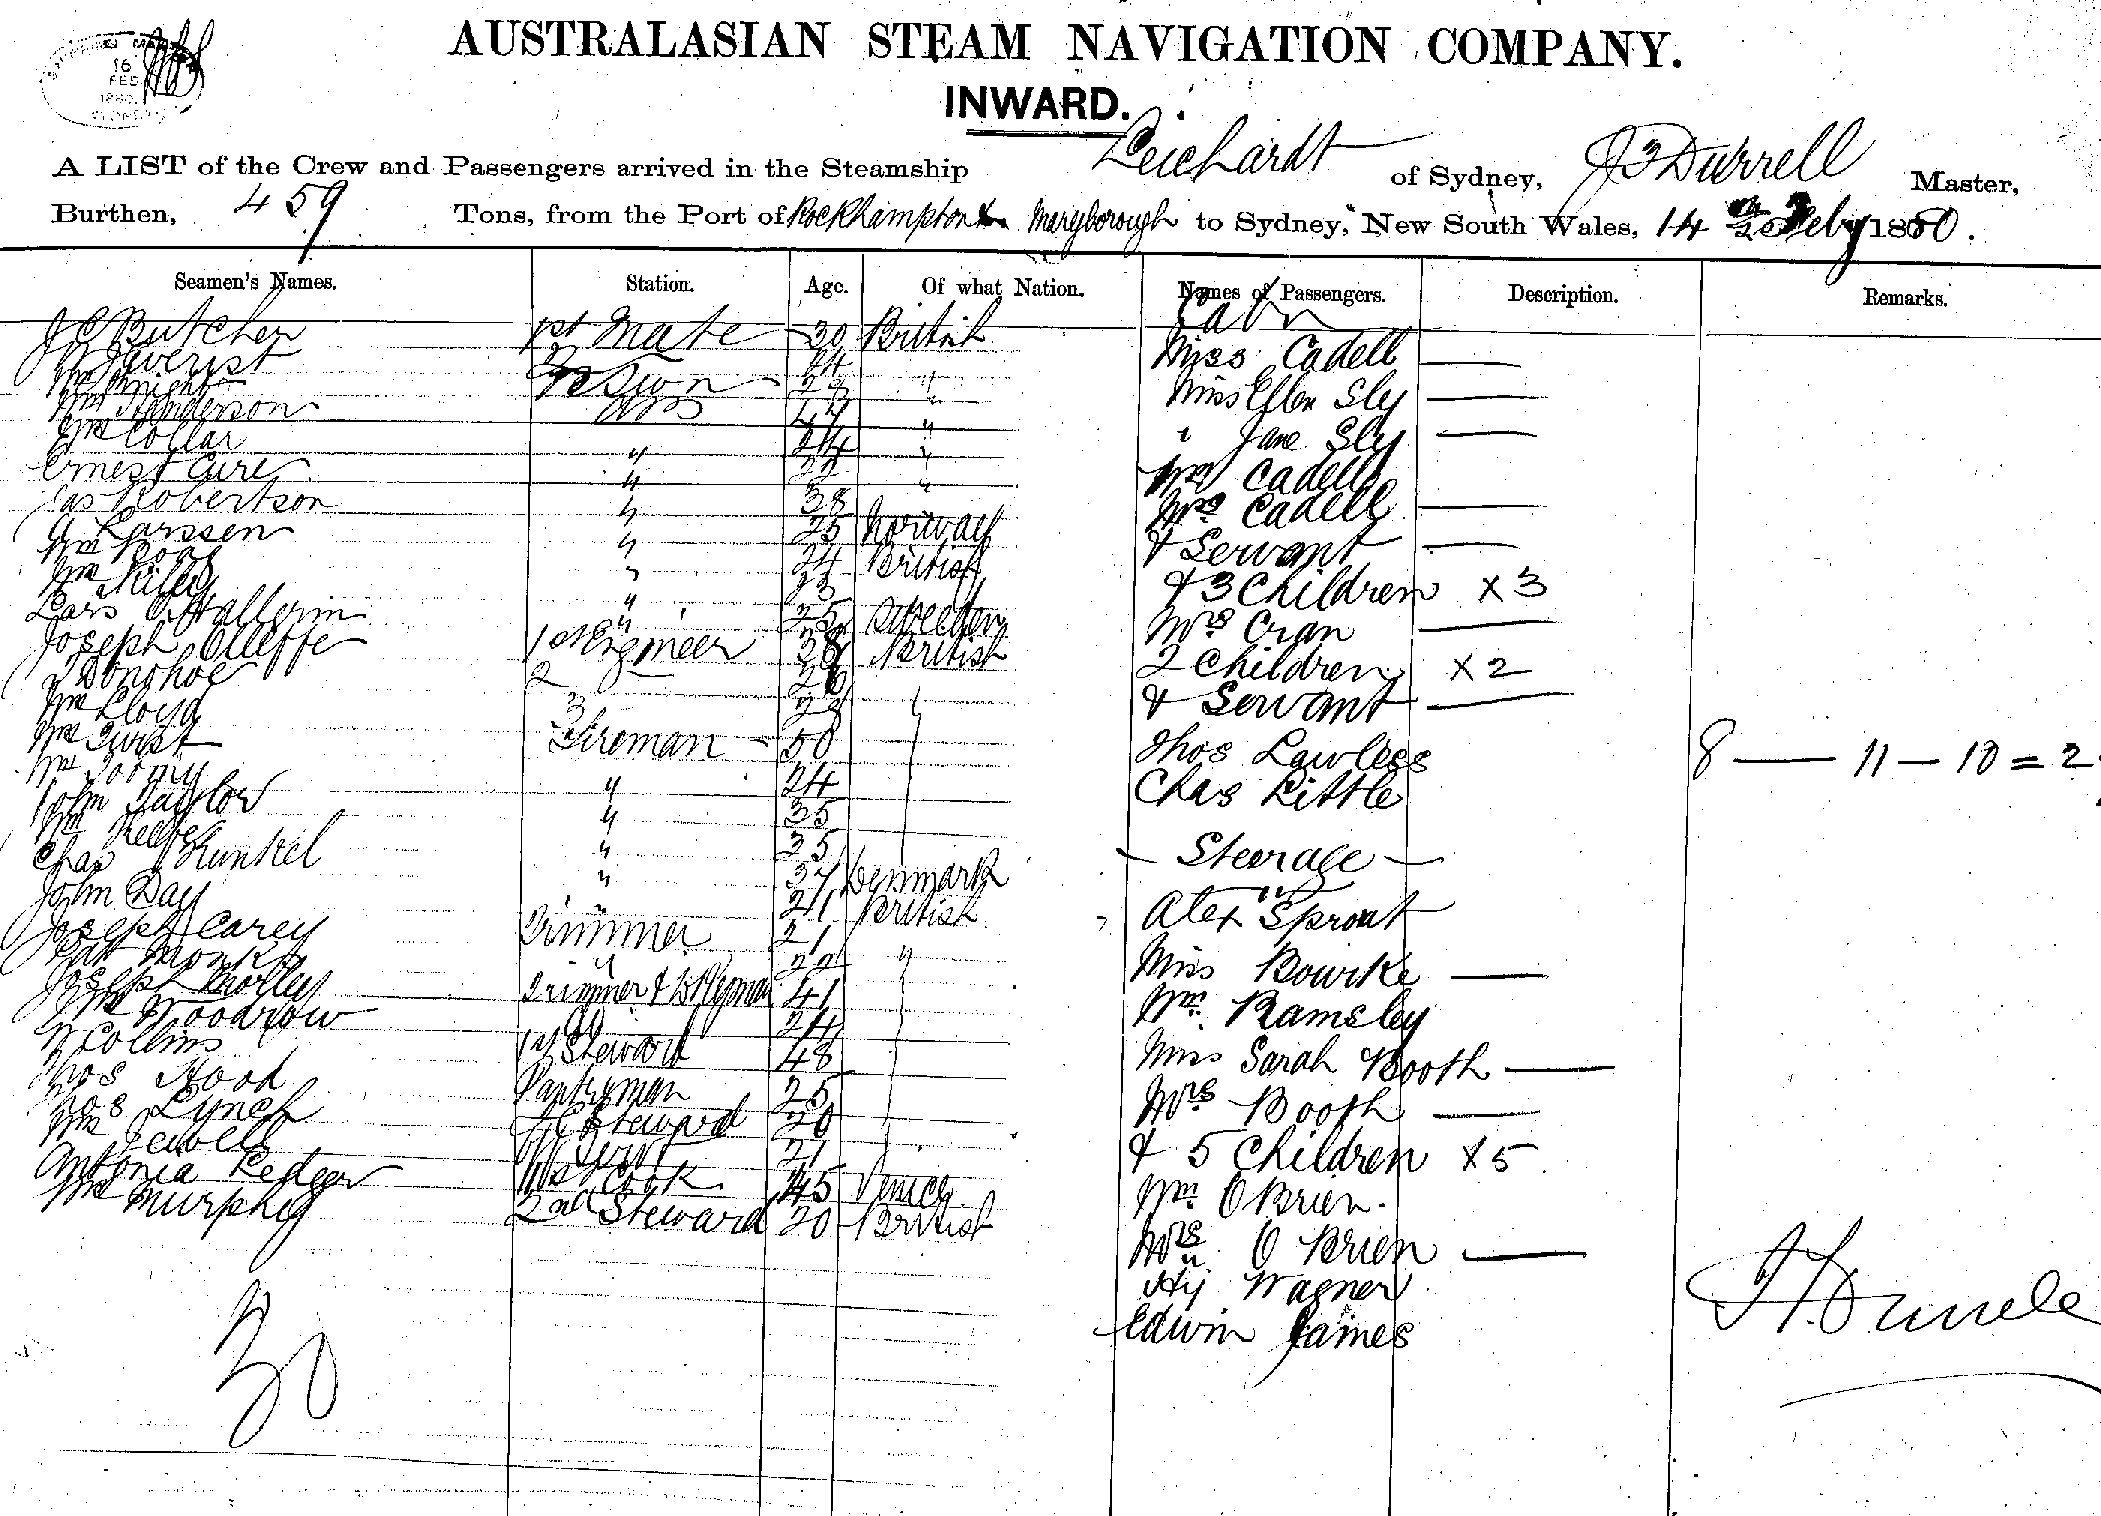 16
FEB
AUSTRALASIAN STEAM NAVIGATION COMPANY.
INWARD.
A LIST of the Crew and Passengers arrived in the Steamship Leichardt of Sydney, J Durrell Master,
Burthen, 459 Tons, from the Port of Rockhampton & Maryborough to Sydney, New South Wales, 14 Feby 1880.
Seamen's Names. Station. Age. Of what Nation. Names of Passengers. Description. Remarks.
Cabin
J C Butcher 1st Mate 30 British
W Everist 24 "
Wm Knight "
Wm Henderson AB 47 "
Wm Collar " 24 "
Ernest Cure " 22 "
Jas Robertson " 38
A Larssen " 25 Norway
Wm Boag " 24 British
Wm Riley "
Lars O Hallerin " 25 Sweeden
Joseph Olleffe 1st Engineer 38 British
Donohoe 2
Wm Lloyd 3
Wm Swift Fireman 50
Wm Toomy " 24
John Taylor " 35
Wm Keebe " 35
Chas Kunkel " 37 Denmark
John Day " 21 British
Joseph Carey Trimmer 21 "
Patt Monks " 22
Joseph Morley Trimmer & 41
Wm Woodrow 24
Collins 1st Steward 48
Thos Hood Pantryman 25
Thos Lynch Steward 20
Wm Jewell 21
Antonia Redger Cook 45 Venice
Wm Murphy 2nd Steward 20 British
30
Miss Cadell —
Miss Ellen Sly —
" Jane Sly —
Mr Cadell
Mrs Cadell —
& Servant —
& 3 Children x 3
Mrs Cran —
2 Children x 2
& Servant —
Thos Lawless
Chas Little
8 — 11 — 10 = 2
— Steerage —
Alex Sproat
Miss Bourke —
Wm Ramsley
Miss Sarah Booth —
Mrs Booth —
& 5 Children x 5
Wm O Brien.
Mrs O Brien —
Hy Wagner
Edwin James